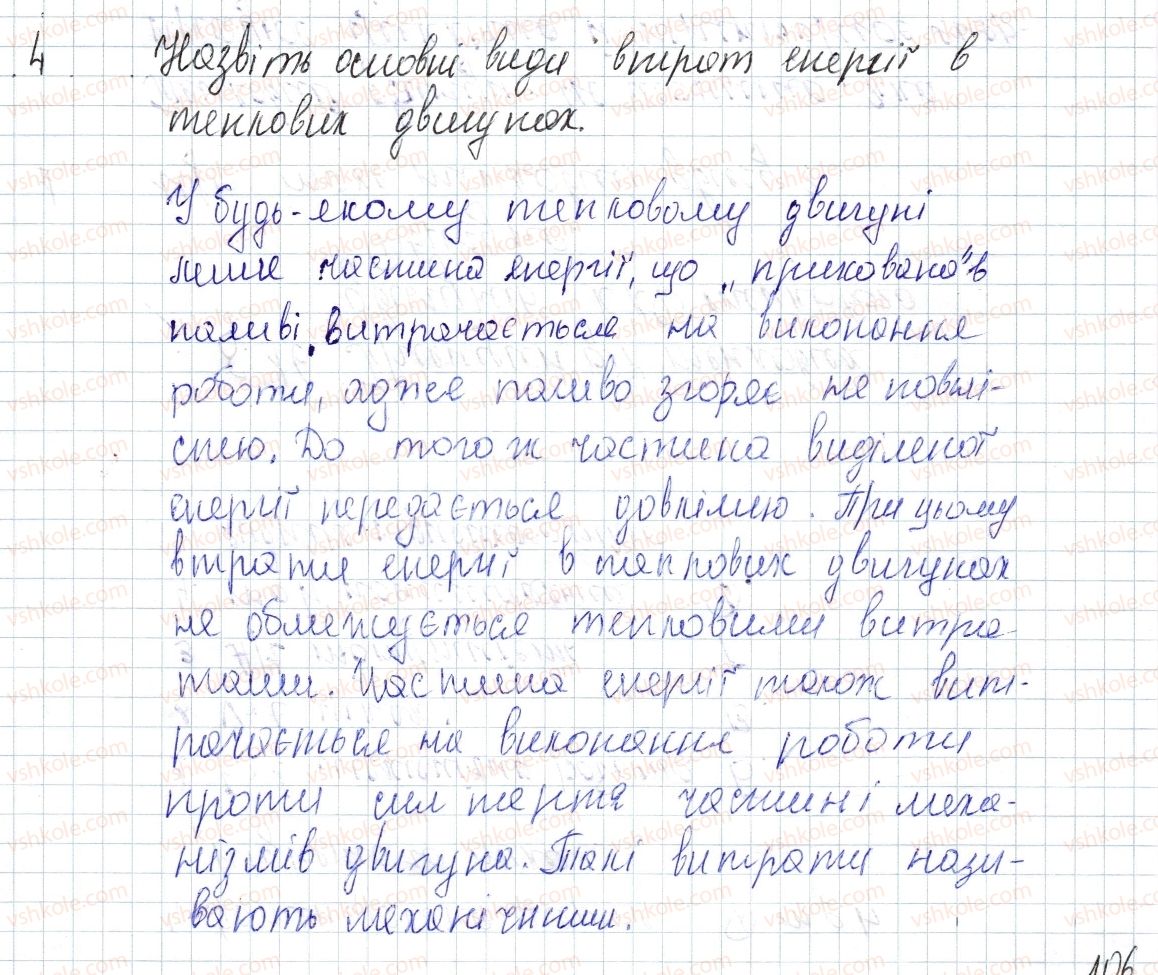 4 Назвіть основні види втрат енергії в
теплових двигунах.
У будь-якому тепловому двигуні
лише частина енергії, що „прихована" в
паливі, витрачається на виконання
роботи, адже паливо згоряє не повні-
стю. До того ж частина виділеної
енергії передається довкіллю. При цьому
втрати енергії в теплових двигунах
не обмежується тепловими витра-
тами. Частина енергії також вит-
рачається на виконання роботи
проти сил тертя частин і меха-
нізмів двигуна. Такі витрати нази-
вають механічними.
106